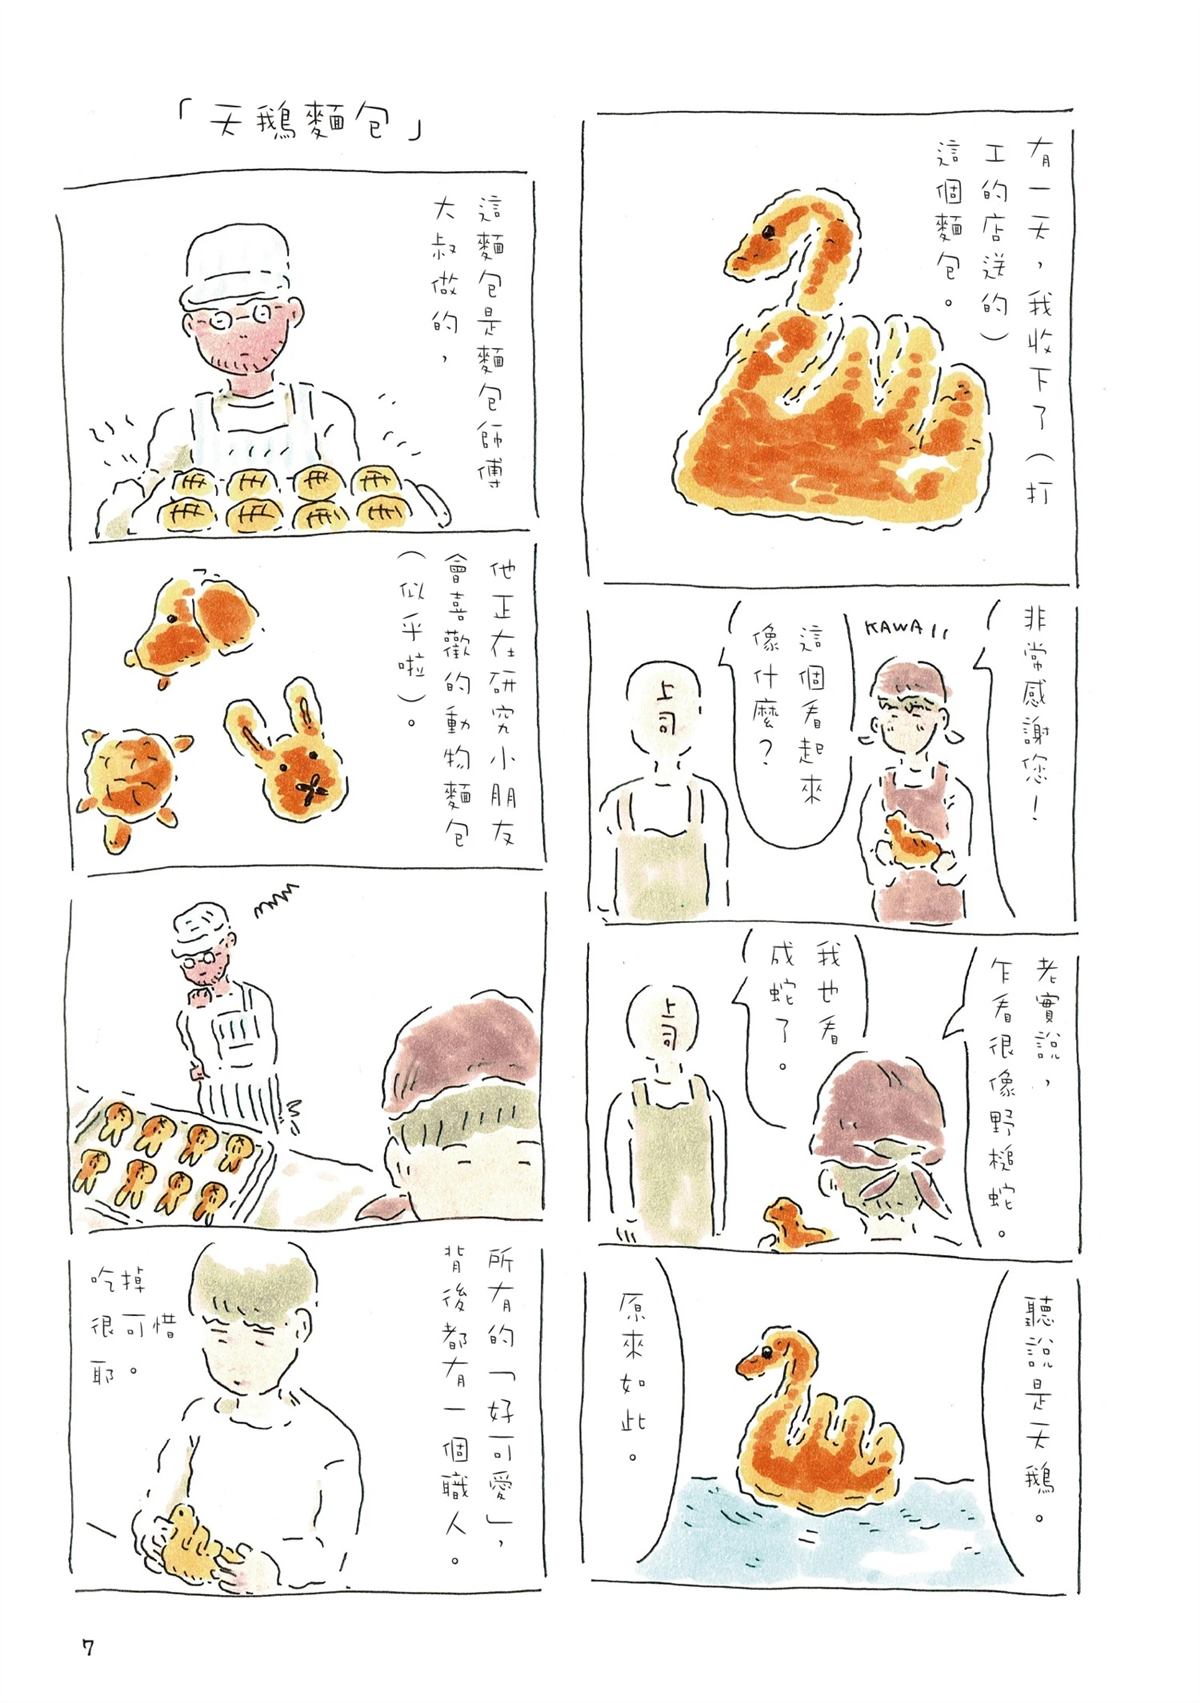 「天鵝麵包」
有一天，我收下了（打
工的店送的）
這個麵包。
非常感謝您！
KAWAII
這個看起來
像什麼？
上司
老實說，
乍看很像野槌蛇。
我也看
成蛇了。
上司
聽說是天鵝。
原來如此。
這麵包是麵包師傅
大叔做的，
他正在研究小朋友
會喜歡的動物麵包
（似乎啦）。
所有的「好可愛」，
背後都有一個職人。
吃掉
很可惜
耶。
7